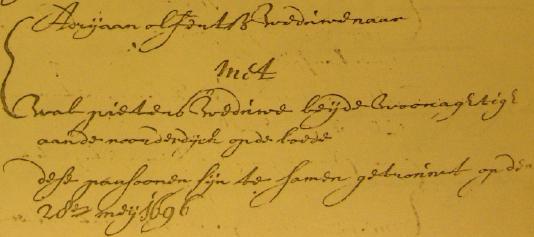 Arijaan olfents Weduwenaar
Met
Walpieters Weduwe beijde Woonagtige
aande noorderdijck opde koede
dese parsoonen sijn te samen getrouwt op den
28en meij 1696